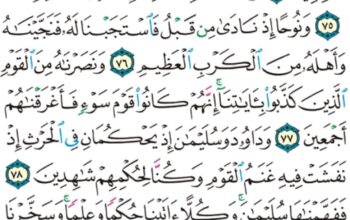 ٧٥ وَنُوحًا إِذْ نَادَىٰ مِن قَبْلُ فَٱسْتَجَبْنَا لَهُۥ فَنَجَّيْنَٰهُ
وَأَهْلَهُۥ مِنَ ٱلْكَرْبِ ٱلْعَظِيمِ ٧٦ وَنَصَرْنَٰهُ مِنَ ٱلْقَوْمِ
ٱلَّذِينَ كَذَّبُوا۟ بِـَٔايَٰتِنَآ إِنَّهُمْ كَانُوا۟ قَوْمَ سَوْءٍ فَأَغْرَقْنَٰهُمْ
أَجْمَعِينَ ٧٧ وَدَاوُۥدَ وَسُلَيْمَٰنَ إِذْ يَحْكُمَانِ فِى ٱلْحَرْثِ إِذْ
نَفَشَتْ فِيهِ غَنَمُ ٱلْقَوْمِ وَكُنَّا لِحُكْمِهِمْ شَٰهِدِينَ ٧٨
فَفَهَّمْنَٰهَا سُلَيْمَٰنَ وَكُلًّا ءَاتَيْنَا حُكْمًا وَعِلْمًا وَسَخَّرْنَا